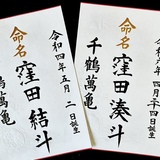 令和六年四月二十四日誕生
命名 窪田湊斗
千鶴萬亀
令和四年五月二日誕生
命名 窪田結斗
鶴萬亀